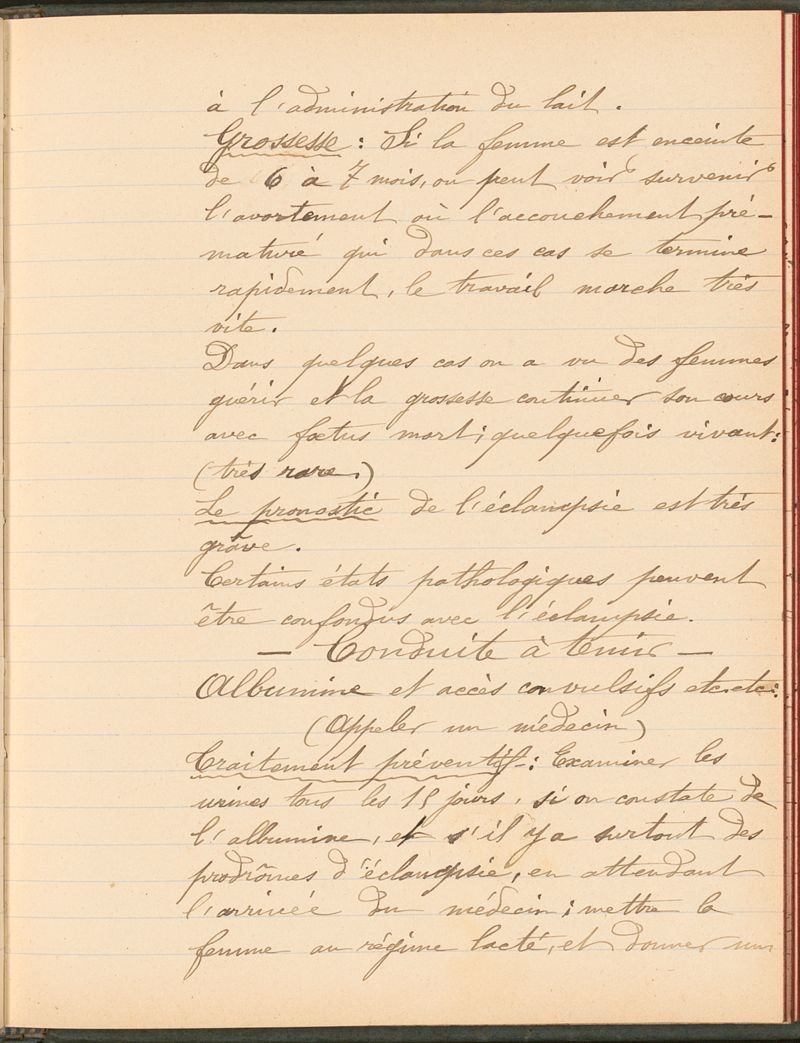 à l'administration du lait.
Grossesse : Si la femme est enceinte
de 6 à 7 mois, on peut voir survenir
l'avortement où l'accouchement pré-
maturé qui dans ces cas se termine
rapidement, le travail marche très
vite.
Dans quelques cas on a vu des femmes
guérir et la grossesse continuer son cours
avec fœtus mort; quelquefois vivant:
(très rare.)
Le pronostic de l'éclampsie est très
grâve.
Certains états pathologiques peuvent
être confondus avec l'éclampsie.
— Conduite à tenir —
Albumine et accès convulsifs etc. etc:
(Appeler un médecin)
Traitement préventif-: Examiner les
urines tous les 15 jours, si on constate de
l'albumine, et s'il y a surtout des
prodrômes d'éclampsie, en attendant
l'arrivée du médecin; mettre la
femme au régime lacté, et donner un